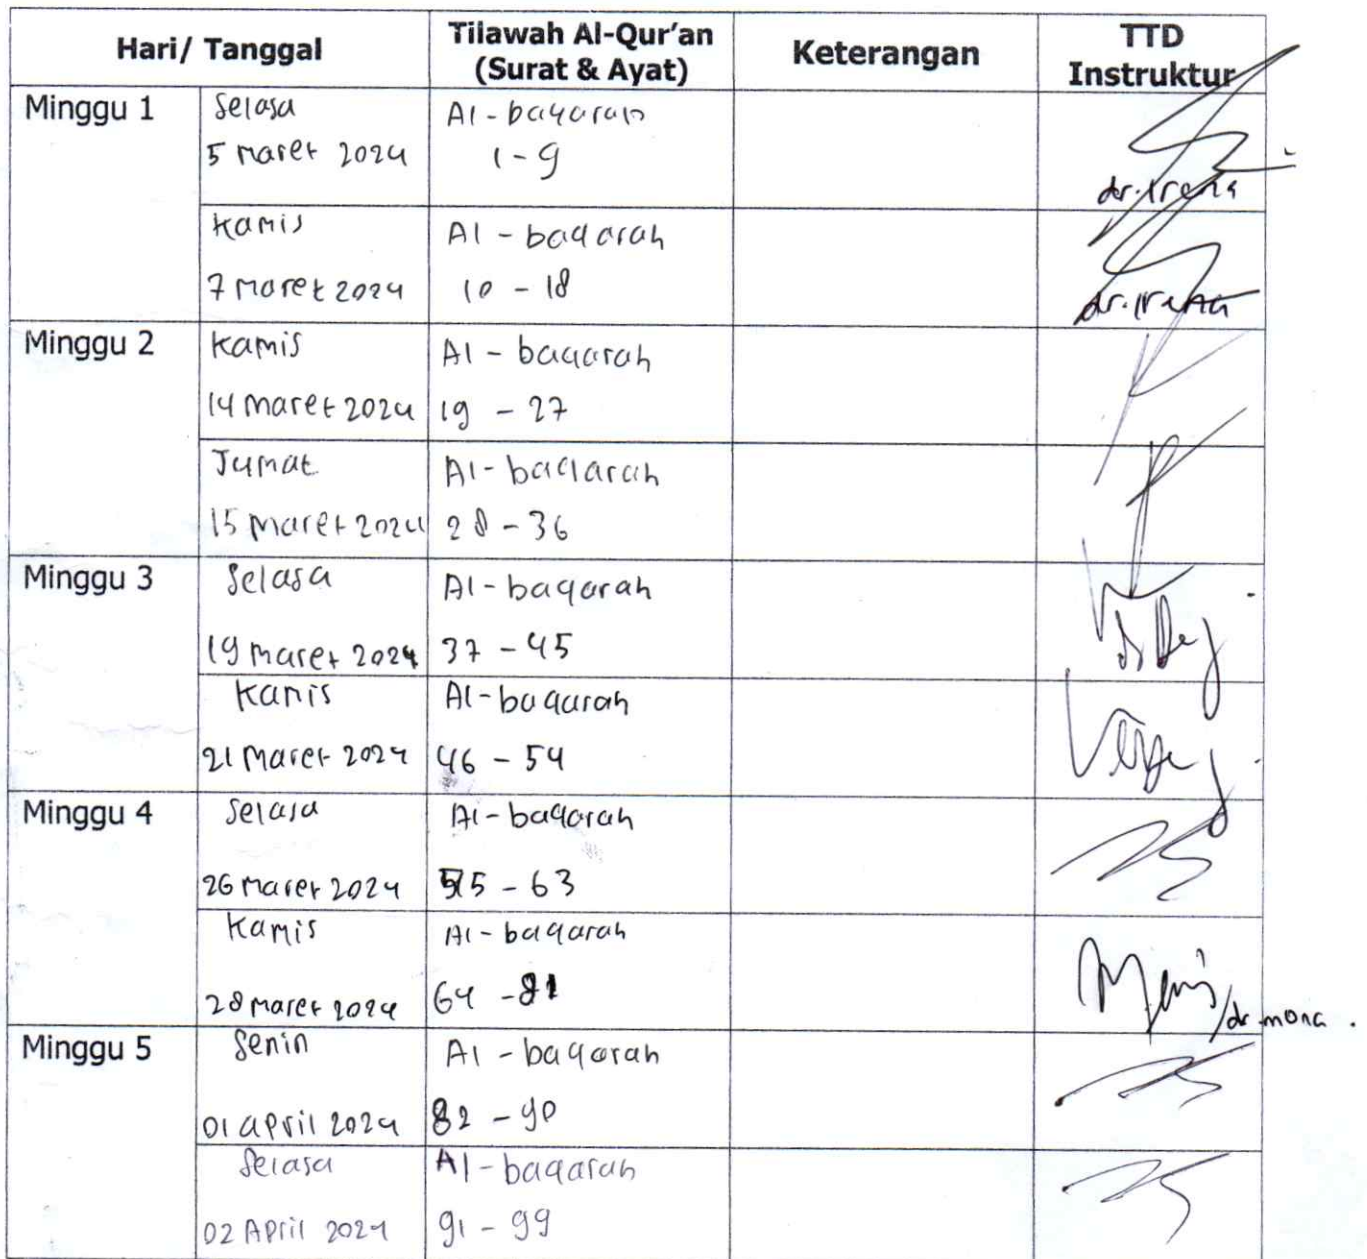 Hari/ Tanggal
Tilawah Al-Qur'an
(Surat & Ayat)
Keterangan
TTD
Instruktur
Minggu 1
Selasa
5 maret 2024
Al-baqarah
1-9
dr. Irena
Kamis
7 maret 2024
Al - baqarah
10 - 18
dr. Irena
Minggu 2
Kamis
14 maret 2024
Al - baqarah
19 - 27
Jumat
15 maret 2024
Al-baqarah
28 - 36
Minggu 3
Selasa
19 maret 2024
Al-baqarah
37 - 45
Kamis
21 Maret 2024
Al-baqarah
46 - 54
Minggu 4
Selasa
26 maret 2024
Al-baqarah
55 - 63
Kamis
28 maret 2024
Al-baqarah
64 - 81
dr. mona.
Minggu 5
Senin
01 april 2024
Al - baqarah
82 - 90
Selasa
02 April 2024
Al-baqarah
91 - 99